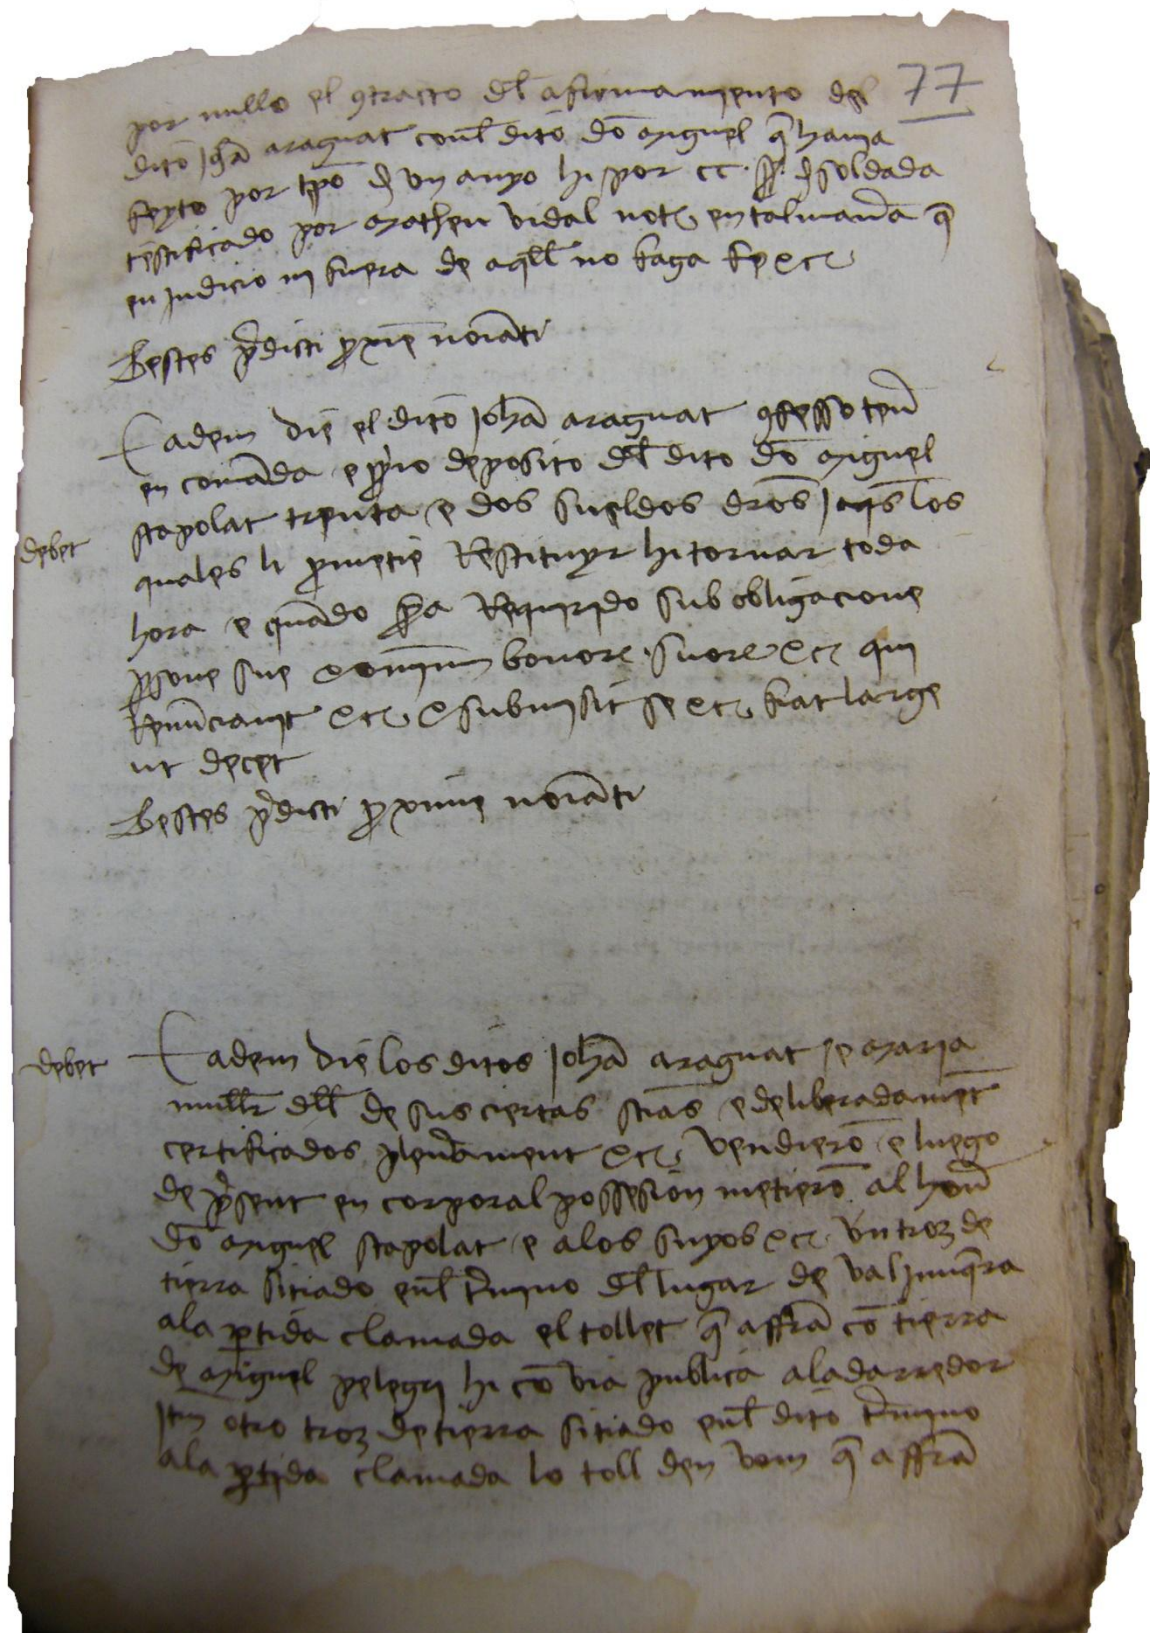 77
por nullo el 9tracto dl̄ afirmamiento del
dito Johā araguat conl̄ dito dō miguel q̄ hauia
feyto por tpō d̄ vn anyo hi por cc ss d̄ soldada
testificado por matheu vidal not en tal maña q̄
en judicio ni fuera de aq̄ll no faga fe etc
Testes p̄dicti ꝓxīe noīati
Eadem die el dito Johā araguat 9fesso ten̄
en comāda e pp̄io deposito dl̄ dito dō miguel
stapolat trenta e dos sueldos dr̄os jaq̄s los
debet
quales li ꝓmetie Restituyr hi tornar toda
hora e quādo s̄ra Requirido sub obligacione
ꝑsone sue et om̄ium bonoꝝ suoꝝ etc qui
Renūciant etc et submisit se etc fiat large
ut decet
Testes p̄dicti ꝓxime noīati
debet
Eadem die los ditos Johā araguat e maria
mull̄r dll̄ de sus ciertas sciās e deliberadamēt
certificados plen̄ament etc vendierō e luego
de p̄sent en corporal possesion metierō al hon̄
dō miguel stapolat e alos suyos etc vn troz de
tierra sitiado enl̄ t̄mino dl̄ lugar de valjunq̄ra
ala ꝑtida clamada el tollet q̄ affrā cō tierra
de miguel pelegri hi cō via publica aladarredor
Itm̄ otro troz de tierra sitiado enl̄ dito t̄mino
ala ꝑtida clamada lo toll den vom q̄ affrā